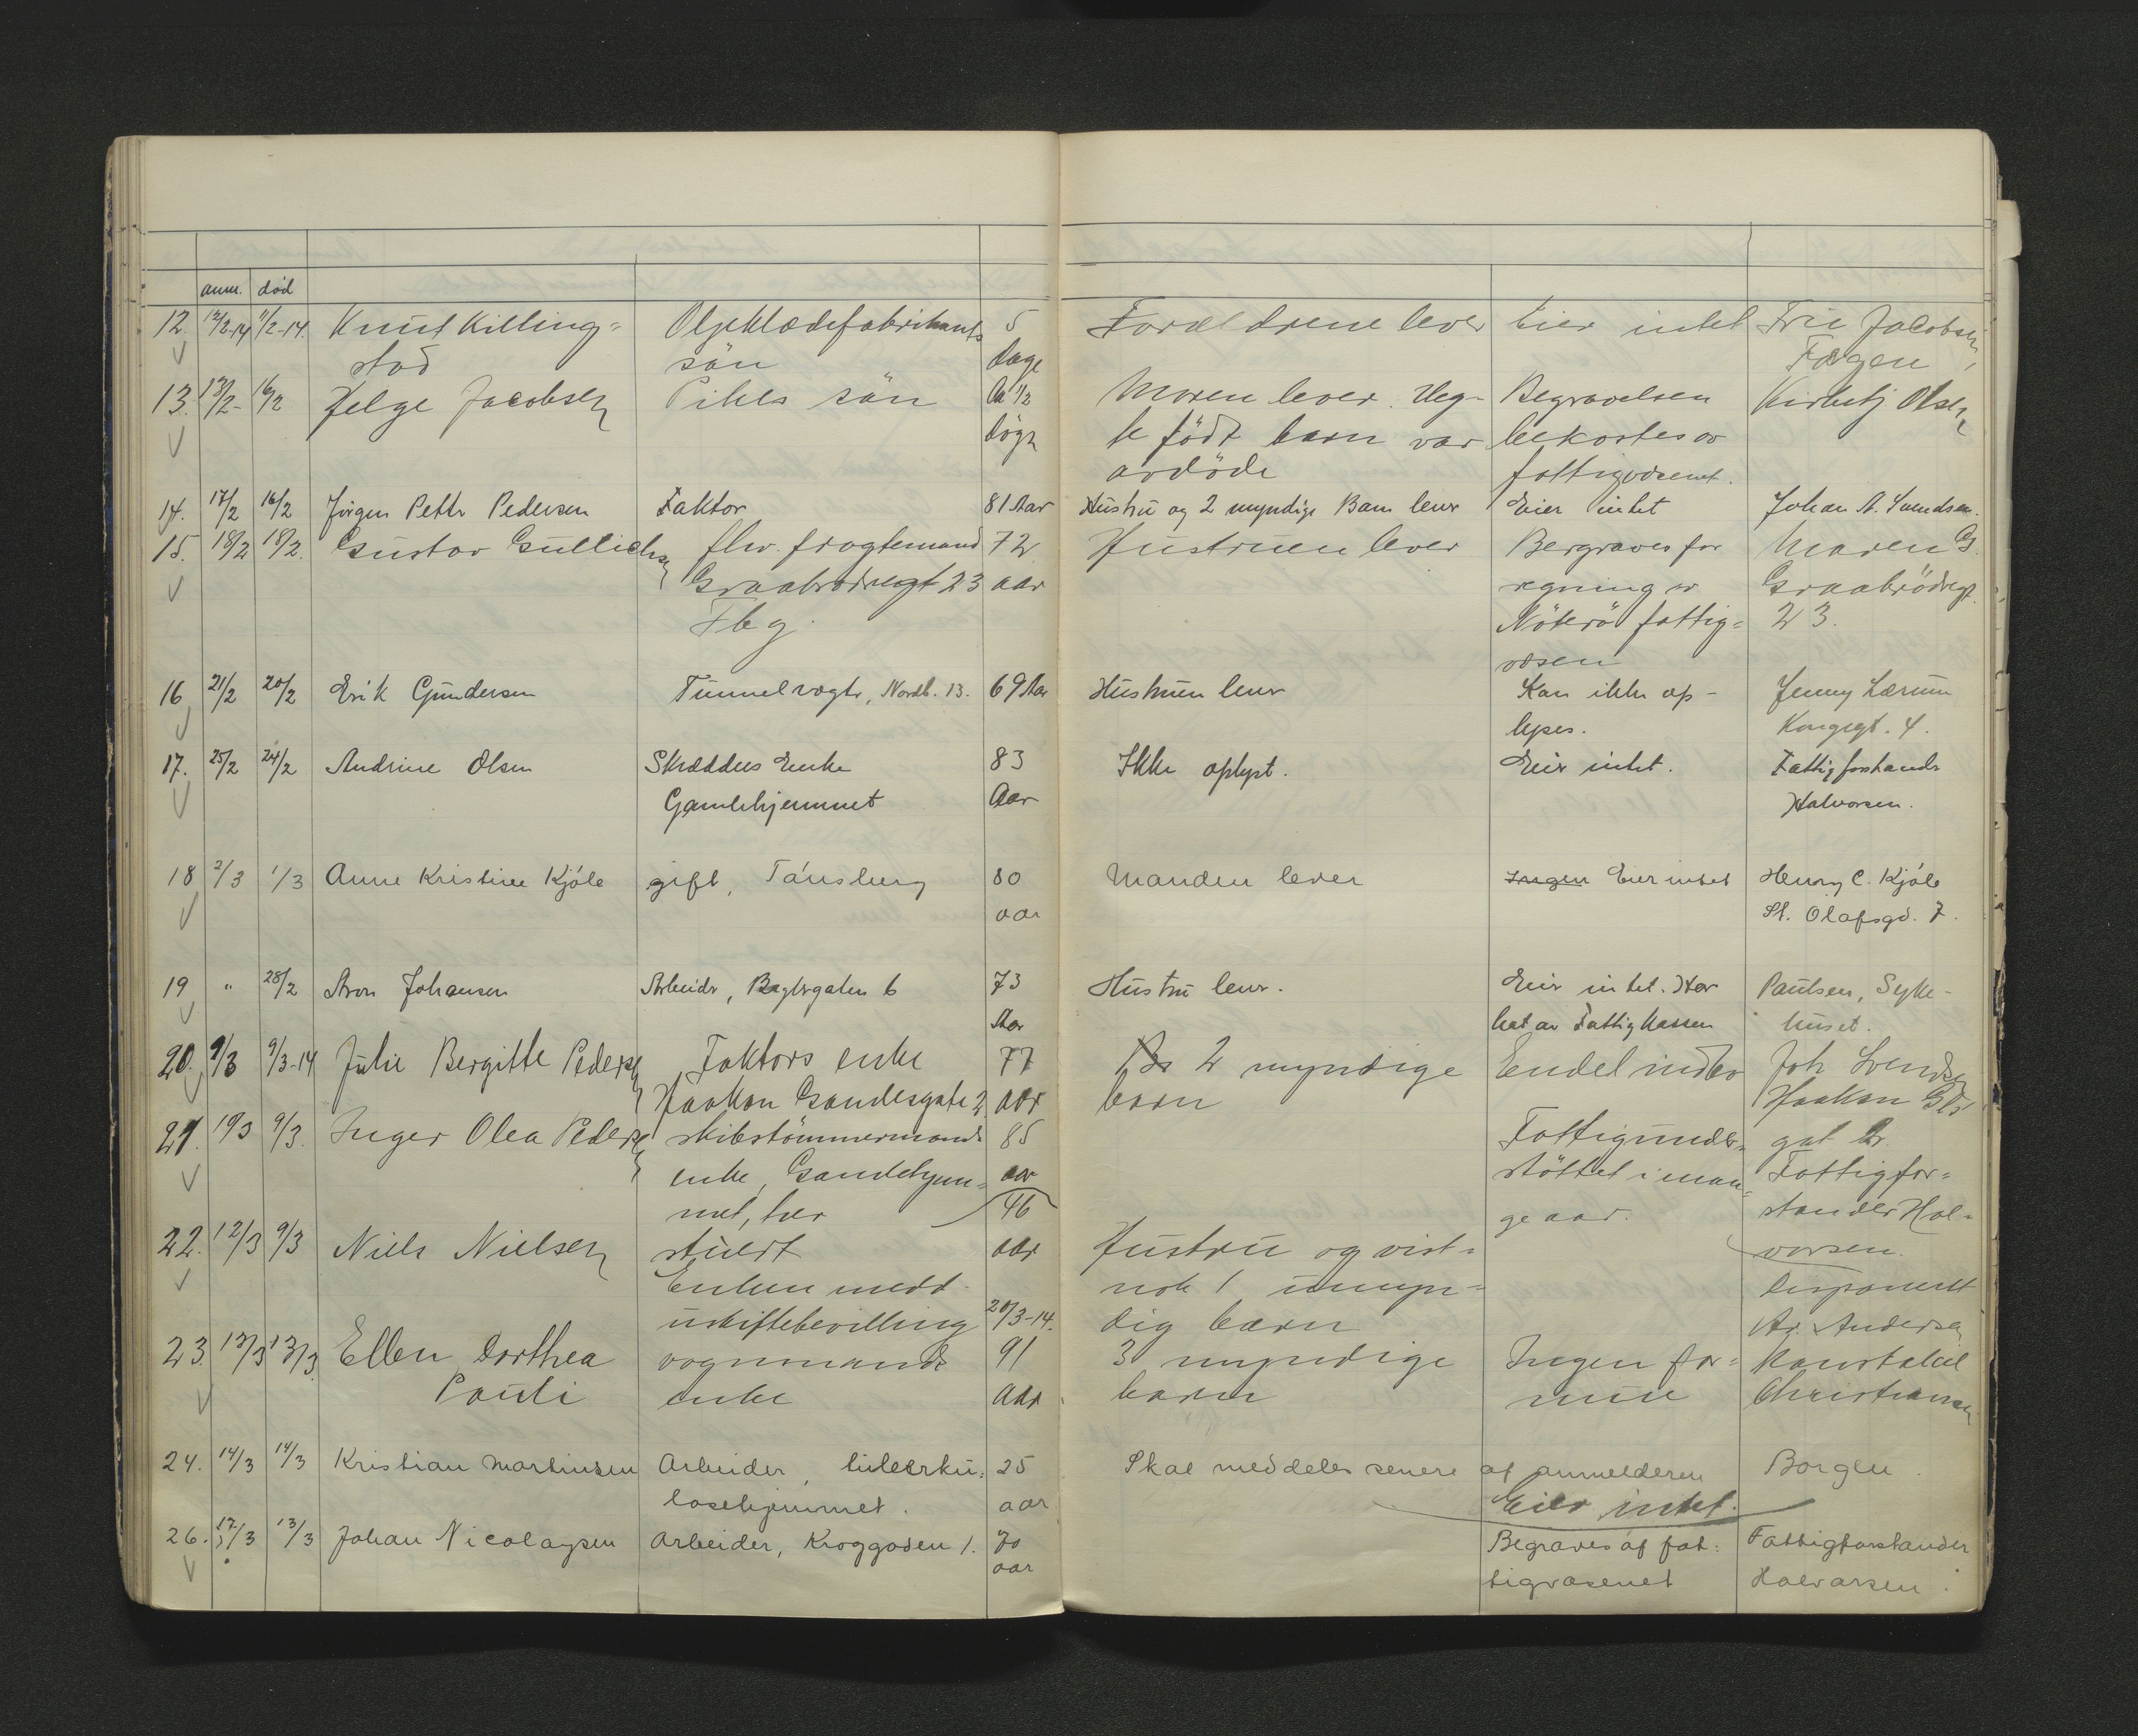 anm. død
12. 12/2-14 11/2-14. Knut Killing= Oljeklædefabrikants 5 Forældrene lever Eier intet Fru Jacobsen,
stad sön dage Færgen
13. 13/2- 16/2 Helge Jacobsen Pikes sön 1/2 Moren lever. Ueg- Begravelsen Kirketj Olsen
døgn te födt barn var bekostes av
avdöde fattigvæsenet.
14. 17/2 16/2 Jörgen Petter Pedersen Faktor 81 Aar Hustru og 2 myndige Barn lever Eier intet Johan A. Svendsen.
15. 18/2 18/2. Gustav Gullichsen fhv. fragtemand 72 Hustruen lever Bergraves for Maren G.
Graabrødregt 23 aar regning av Graabrödregt
Tbg. Nöterö fattig= 23.
væsen
16 21/2 20/2 Erik Gundersen Tunnelvogter, Nordb. 13. 69 Aar Hustruen lever Kan ikke op- Jenny Lærum
lyses. Kongegt. 4.
17. 25/2 24/2 Andrine Olsen Skrædders Enke 83 Ikke oplyst. Eier intet. Fattigforstander
Gamlehjemmet Aar Halvorsen.
18 2/3 1/3 Anne Kristine Kjöle gift, Tönsberg 80 Manden lever Ingen Eier intet Henry C. Kjöle
aar St. Olafsgd. 7.
19 " 28/2 Aron Johansen Arbeider, Baglergaten 6 73 Hustru lever. Eier intet. Har Paulsen, Syke-
Aar hat av Fattigkassen huset.
20. 9/3 9/3-14 Julie Bergitte Pedersen Faktors enke 77 2 myndige Endel indbo Joh Svendsen
Haakon Gamlesgate 2 aar barn Haakon Gls'
21. 10/3 9/3. Inger Olea Pedersen skibstömmermands 85 Fattigunder= gat 2.
enke, Gamlehjem= aar stöttet i man= Fattigfor=
met, her 46 ge aar. stander Hal=
22. 12/3 9/3 Niels Nielsen stuert aar Hustru og vist= vorsen.
Enken medd. nok 1 umyn= Disponent
uskiftebevilling 20/3-14. dig barn Ar. Andersen
23. 13/3 13/3. Ellen Dorthea vognmands 91 3 myndige Ingen for= Konstabel
Pauli enke aar barn mue Christiansen
24. 14/3 14/3 Kristian Martinsen Arbeider, tuberku= 25 Skal meddeles senere af anmelderen Borgen.
losehjemmet. aar Eier intet.
26. 17/3 13/3 Johan Nicolaysen Arbeider, Kroggaden 1. 70 Begraves af fat= Fattigforstander
aar tigvæsenet Halvorsen.